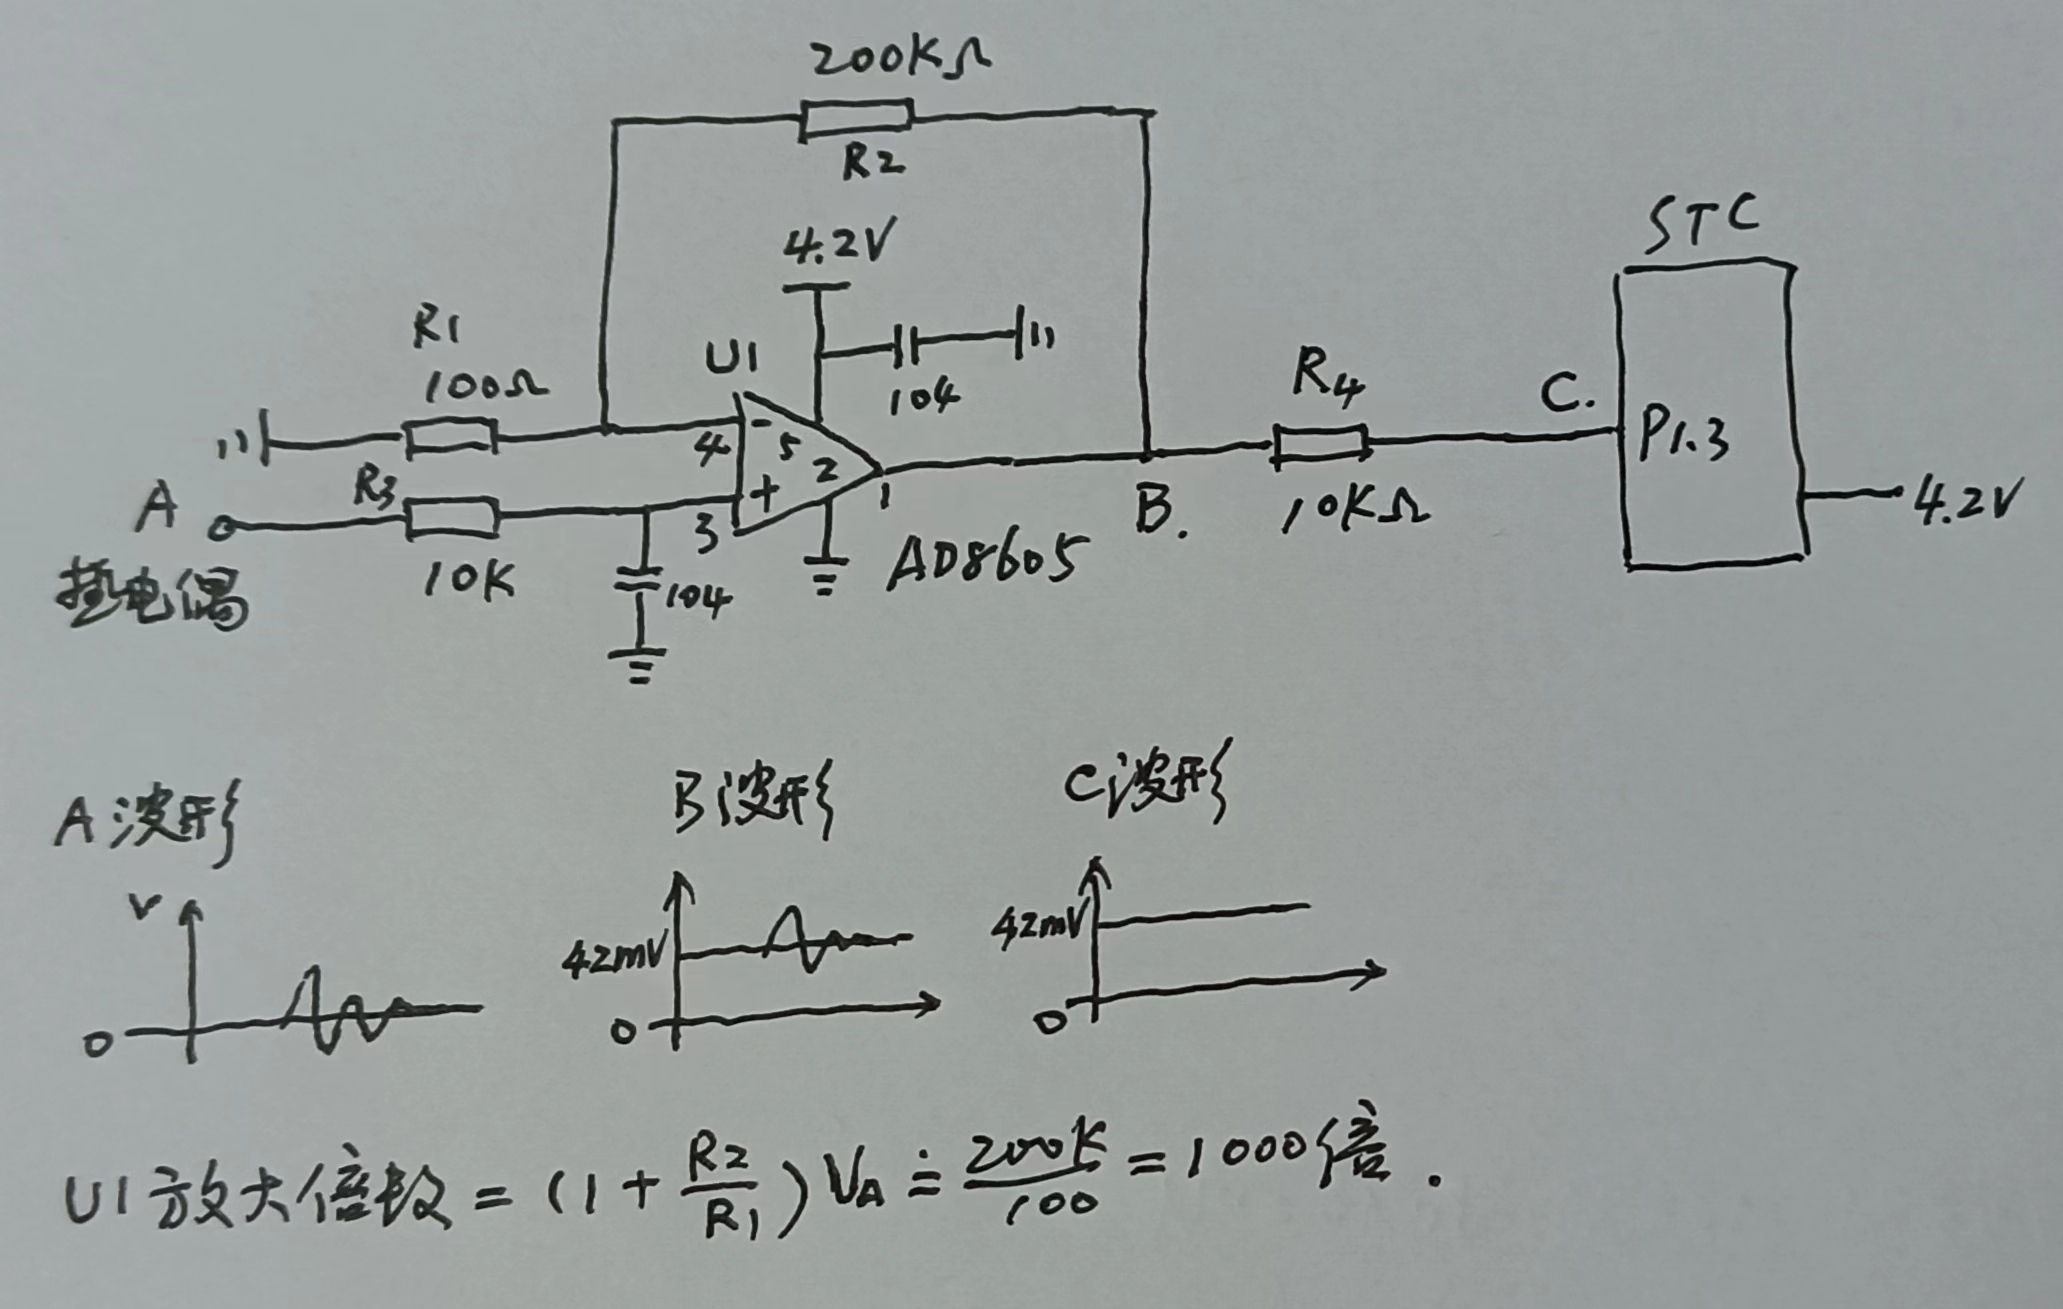 200KΩ
R2
STC
4.2V
R1
100Ω
U1
104
R4
C.
P1.3
4
-
5
2
+
3
1
R3
A
10K
104
AD8605
B.
10KΩ
4.2V
电偶
A波形
B波形
C波形
V
42mV
42mV
0
0
0
U1放大倍数=(1+R2/R1)VA≐200K/100=1000倍.